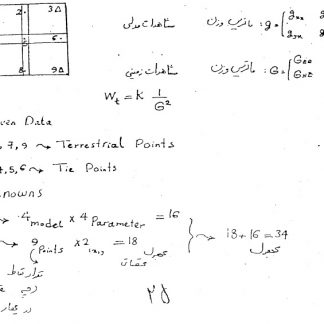 2. 3Δ
6.
8 9Δ
مشاهدات مدلی ماتریس وزن : g = [ gxx
gyx
مشاهدات زمینی ماتریس وزن : G = [ G
G
Wt = K 1/G²
ven Data
, 7, 9 ⇝ Terrestrial Points
4, 5, 6 ⇝ Tie Points
nowns
⇝ 4 model × 4 Parameter = 16
⇝ 9 Points × 2 (x,y) = 18 مجهول
18 + 16 = 34
مجهول
تعداد نقاط
در
25